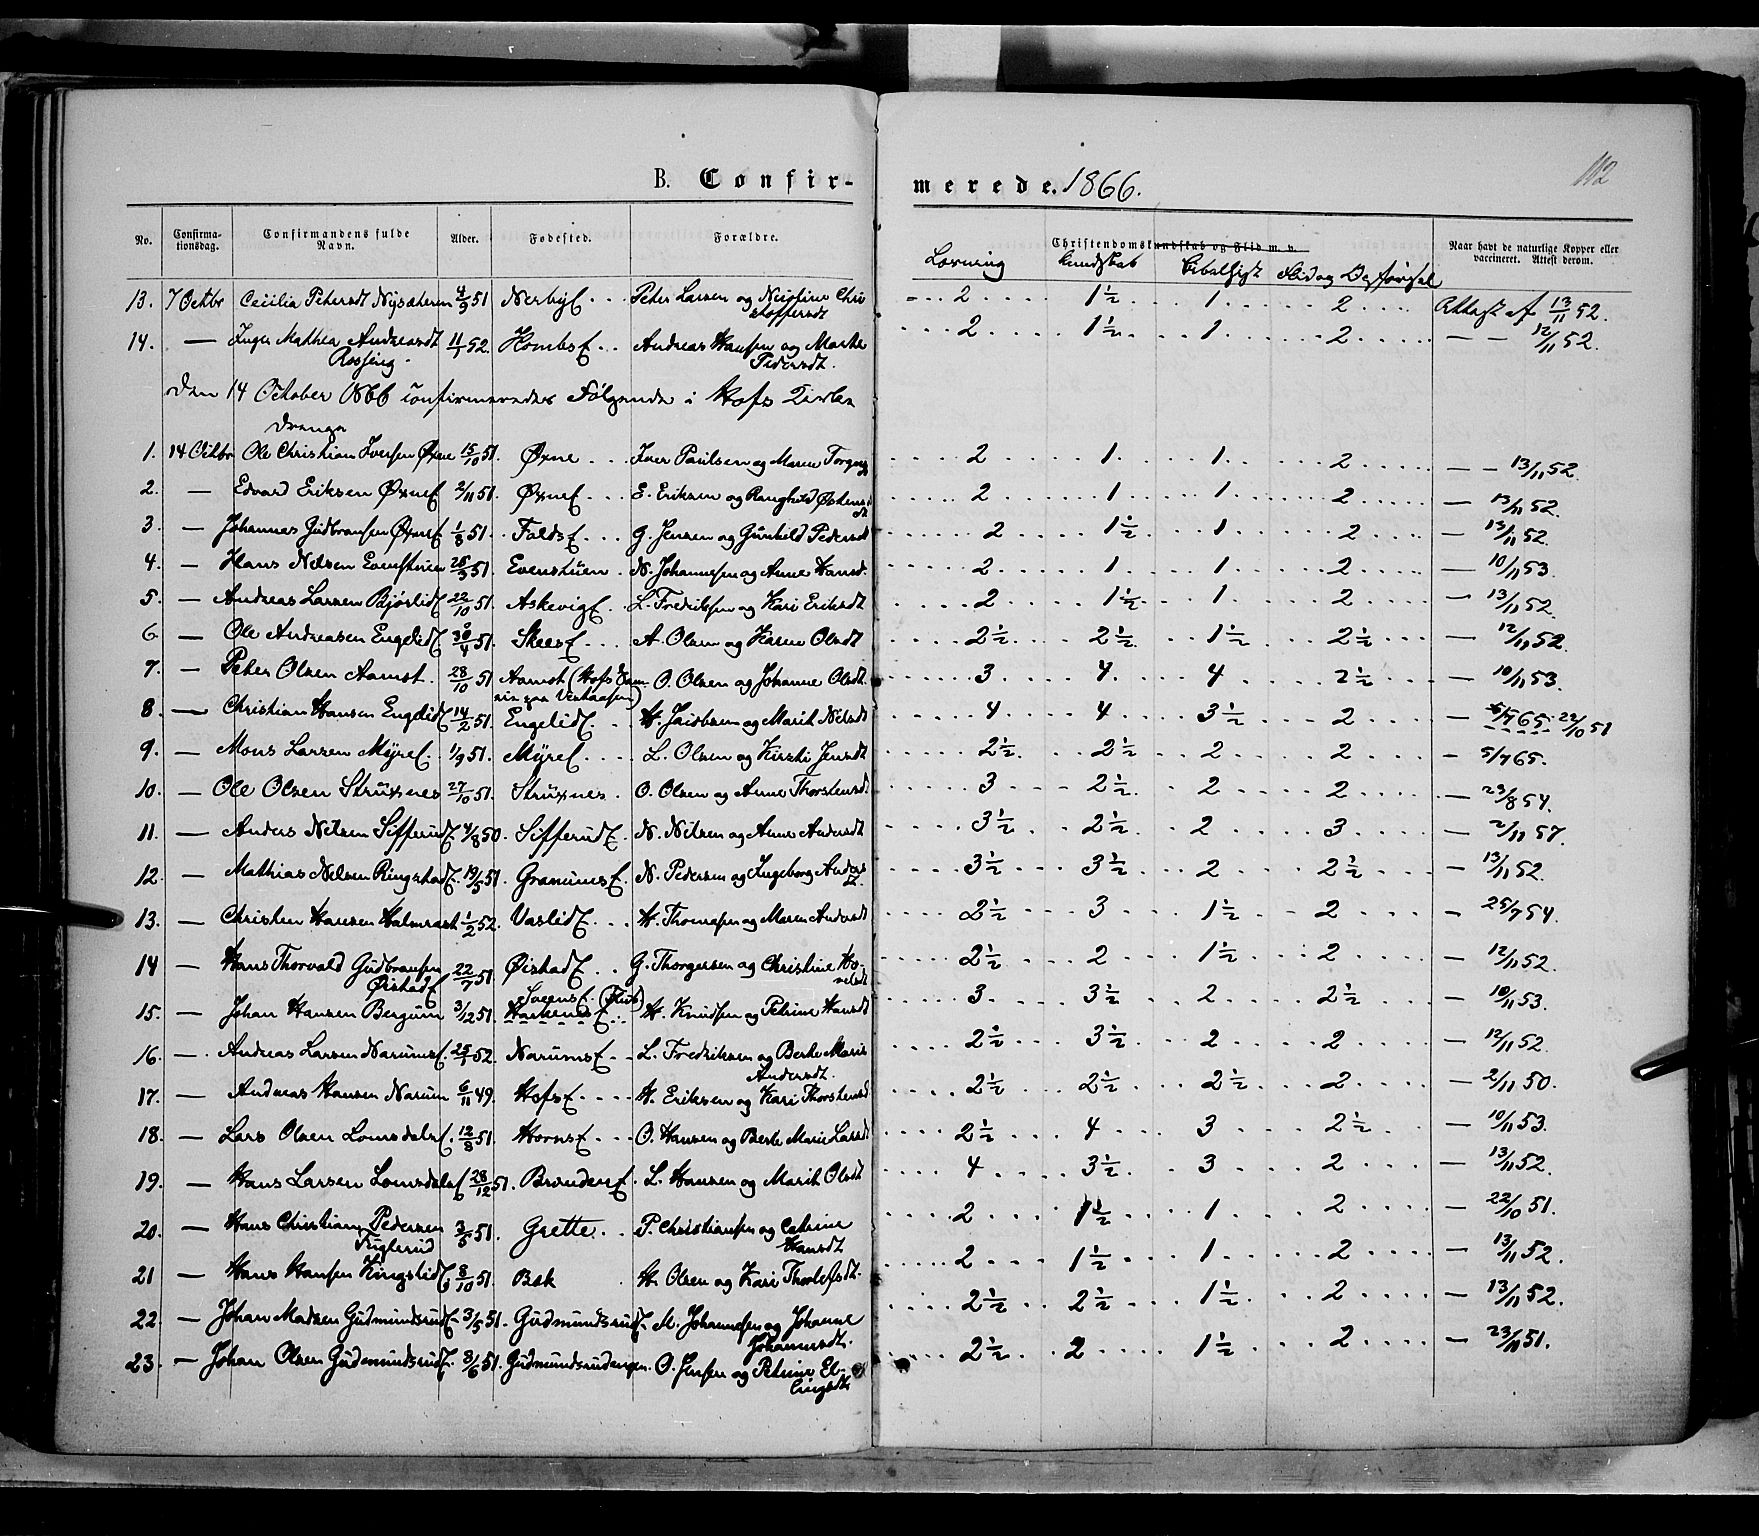 B. Confir-
merede. 1866.
112
No. Confirma-tionsdag. Confirmandens fulde Navn. Alder. Fødested. Forældre. Christendomskundskab og Flid m. v. Naar havt de naturlige Kopper eller vaccineret. Attest derom.
Læsning Kundskab Flid og
13. 7 Octbr Cecilia Petersdt 4/9 51 Nerbyf. Peter Larsen og Chri-stoffersdt 2 1½ 1 2 Attest af 13/11 52.
14. — Inger Mathea Andreasdt 11/1 52. Andreas Hansen og Marthe 2 1½ 1 2 — — 12/11 52.
Røssjeng. Pedersdt.
Den 14 October 1866 confirmeredes Følgende i Hofs Kirke
Drenge
1. 14 Octbr Ole Christian Iversen Øxne 15/10 51. Øxne Iver Paulsen og Maren 2 1 1 2 — — 13/11 52.
2. — Edvard Eriksen Øxnef 2/11 51. Øxnef. E. Eriksen og Ranghild 2 1 1 2 — 13/11 52.
3. — Johannes Gudbransen Øxnef 1/8 51. Faldsf. G. Jensen og Gunhild Pedersdt 2 1½ 1 2 — 13/11 52.
4. — Hans Nilsen Evenstuen 51. Evenstuen N. Johannesen og Anne Hansd. 2 1 1 2 — 10/11 53.
5. — Andreas Larsen Bjørlidf 22/10 51. Askevigf. L. Fredriksen og Kari Eriksdt 2 1½ 1 2 — 13/11 52.
6 — Ole Andreasen Engelidf 30/4 51. Skeesf. A. Olsen og Karen Olsdt 2½ 2½ 1½ 2½ — 12/11 52.
7. — Peter Olsen Aamot. 28/10 51 Aamot (Hofs O. Olsen og Johanne Olsdt. 3 4 4 2½ — 10/11 53.
8. — Christian Hansen Engelidf 14/2 51. Engelidf. H. Jacobsen og Marit Nilsdt 4 4 3½ 2 — 5/7 65. 22/10 51
9. — Mons Larsen Myref. 1/9 51. Myref. L. Olsen og Kirsti Jensdt 2½ 2½ 2 2 — 5/7 65.
10. — Ole Olsen Strüxnes 27/10 51. Strüxnes O. Olsen og Anne Thorstensd. 3 2½ 2 2 — 23/8 54.
11. — Anders Nilsen Sifferudf. 4/8 50. Sifferudf. N. Nilsen og Anne Andersdt 3½ 2½ 2 3 — 2/11 57.
12. — Mathias Nilsen Ringstadf. 19/5 51. Granumsf. N. Pedersen og Ingeborg Anders 3½ 3½ 2 2½ — 13/11 52.
13. — Christen Hansen Halmrast 1/2 52. Vaslidf. H. Thomesen og Maren Andersdt 2½ 3 1½ 2 — 25/7 54.
14 — Hans Thorvald Gudbransen 22/7 51 Øistadf. G. Thorgersen og Christine 2½ 2 1½ 2 — 12/11 52.
Øistadf
15. — Johan Hansen Bergum 3/12 51. H. Knudsen og Petrine Hansdt 3 3½ 2 2½ — 10/11 53.
16. — Andreas Larsen Narumsf. 25/1 52. Narumsf. L. Fredriksen og Berte Marie 2½ 3½ 2 2 — 12/11 52.
Andersdt.
17. — Andreas Hansen Narum 6/11 49. Hofsf. H. Eriksen og Kari Thorstensd 2½ 2½ 2½ 2 — 2/11 50.
18. — Lars Olsen Lomsdalsf. 12/8 51. Hornsf. O. Hansen og Berte Marie Larsdt 2½ 4 3 2½ — 10/11 53.
19. — Hans Larsen Lomsdalsf 28/12 51. L. Hansen og Marit Olsdt 4 3½ 3 2 — 13/11 52.
20. — Hans Christian Pedersen 3/5 51. Grette. P. Christiansen og Catrine 2 1½ 1 2 — 22/10 51.
Fuglerud Hansdt
21 — Hans Hansen Kingslidf 8/10 51. Bæk H. Olsen og Kari 2 1½ 1 2 — 13/11 52.
22. — Johan Madsen Gudmundsrudf. 3/5 51. Gudmundsrudf. M. Johannesen og Johanne 2½ 2½ 1½ 2 — 13/11 52.
Johannesdt.
23. — Johan Olsen Gudmundsrudf. 8/6 51. Gudmundsrudengen. O. Jensen og Petrine El-lingsdt. 2½ 2 1½ 2 — 23/11 51.